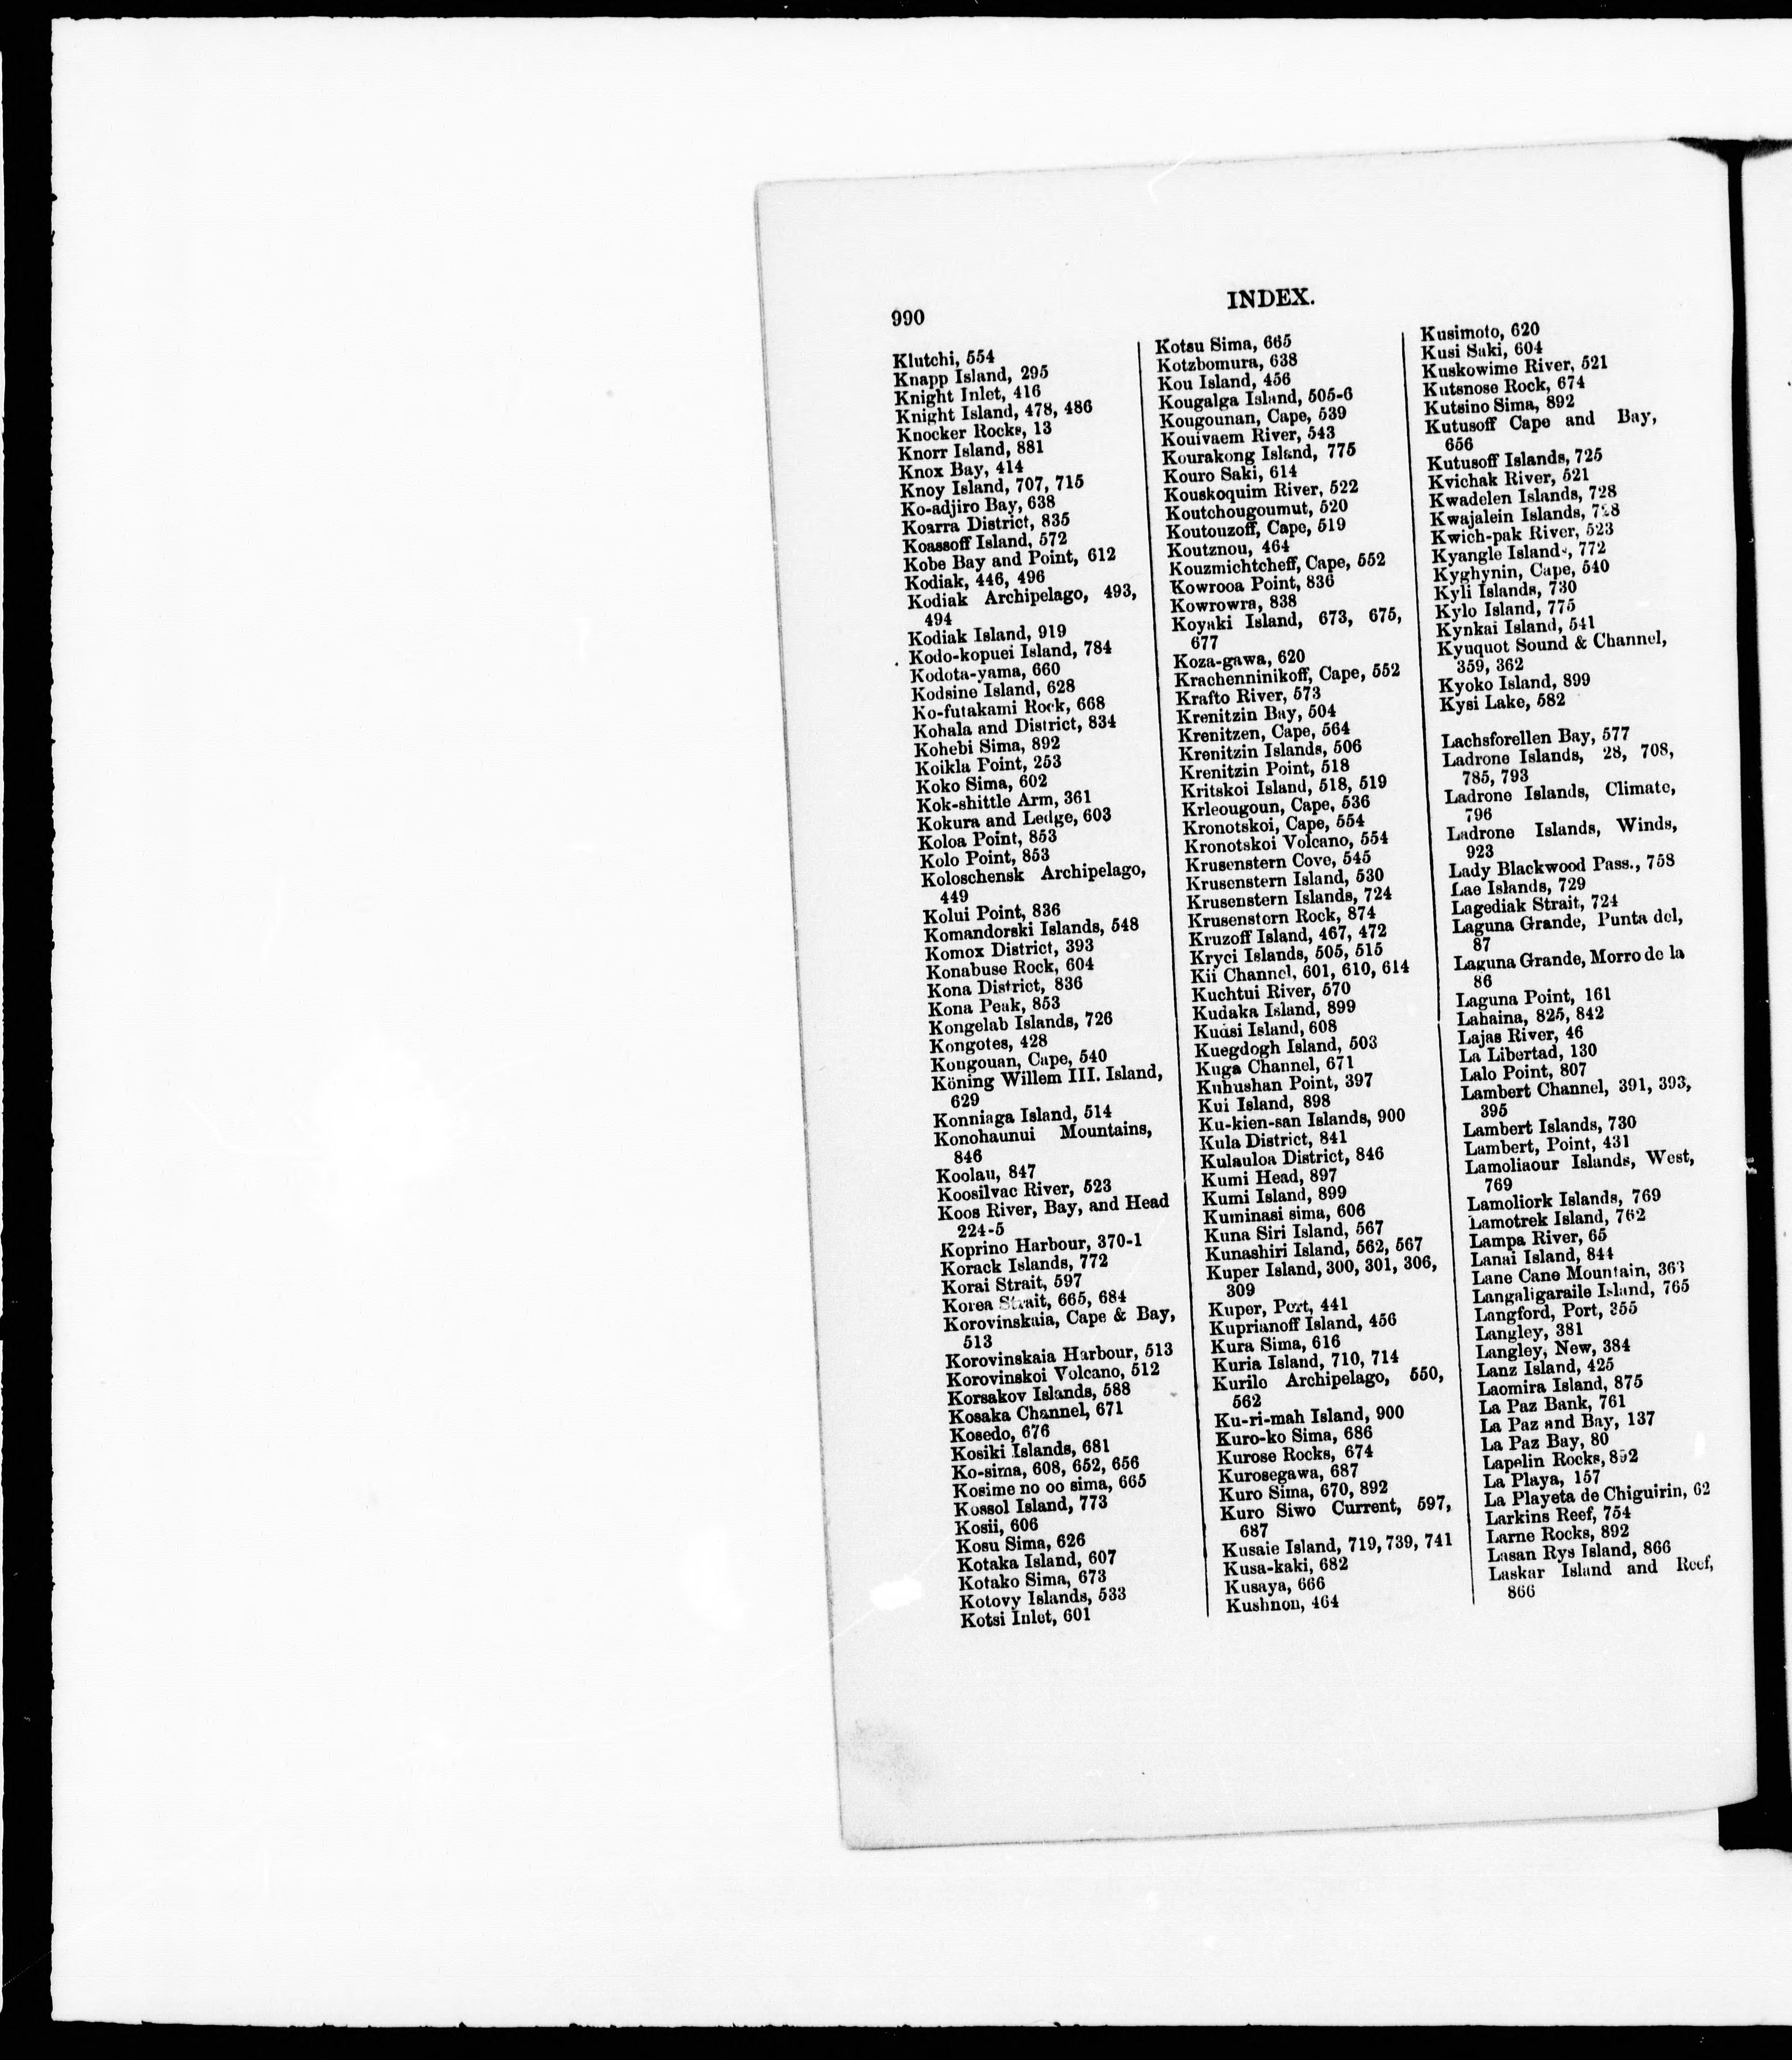 990
INDEX.
Klutchi, 554
Knapp Island, 295
Knight Inlet, 416
Knight Island, 478, 486
Knocker Rocks, 13
Knorr Island, 881
Knox Bay, 414
Knoy Island, 707, 715
Ko-adjiro Bay, 638
Koarra District, 835
Koassoff Island, 572
Kobe Bay and Point, 612
Kodiak, 446, 496
Kodiak Archipelago, 493,
494
Kodiak Island, 919
Kodo-kopuei Island, 784
Kodota-yama, 660
Kodsine Island, 628
Ko-futakami Rock, 668
Kohala and District, 834
Kohebi Sima, 892
Koikla Point, 253
Koko Sima, 602
Kok-shittle Arm, 361
Kokura and Ledge, 603
Koloa Point, 853
Kolo Point, 853
Koloschensk Archipelago,
449
Kolui Point, 836
Komandorski Islands, 548
Komox District, 393
Konabuse Rock, 604
Kona District, 836
Kona Peak, 853
Kongelab Islands, 726
Kongotes, 428
Kongouan, Cape, 540
Köning Willem III. Island,
629
Konniaga Island, 514
Konohaunui Mountains,
846
Koolau, 847
Koosilvac River, 523
Koos River, Bay, and Head
224-5
Koprino Harbour, 370-1
Korack Islands, 772
Korai Strait, 597
Korea Strait, 665, 684
Korovinskaia, Cape & Bay,
513
Korovinskaia Harbour, 513
Korovinskoi Volcano, 512
Korsakov Islands, 588
Kosaka Channel, 671
Kosedo, 676
Kosiki Islands, 681
Ko-sima, 608, 652, 656
Kosime no oo sima, 665
Kossol Island, 773
Kosii, 606
Kosu Sima, 626
Kotaka Island, 607
Kotako Sima, 673
Kotovy Islands, 533
Kotsi Inlet, 601
Kotsu Sima, 665
Kotzbomura, 638
Kou Island, 456
Kougalga Island, 505-6
Kougounan, Cape, 539
Kouivaem River, 543
Kourakong Island, 775
Kouro Saki, 614
Kouskoquim River, 522
Koutchougoumut, 520
Koutouzoff, Cape, 519
Koutznou, 464
Kouzmichtcheff, Cape, 552
Kowrooa Point, 836
Kowrowra, 838
Koyaki Island, 673, 675,
677
Koza-gawa, 620
Krachenninikoff, Cape, 552
Krafto River, 573
Krenitzin Bay, 504
Krenitzen, Cape, 564
Krenitzin Islands, 506
Krenitzin Point, 518
Kritskoi Island, 518, 519
Krleougoun, Cape, 536
Kronotskoi, Cape, 554
Kronotskoi Volcano, 554
Krusenstern Cove, 545
Krusenstern Island, 530
Krusenstern Islands, 724
Krusenstorn Rock, 874
Kruzoff Island, 467, 472
Kryci Islands, 505, 515
Kii Channel, 601, 610, 614
Kuchtui River, 570
Kudaka Island, 899
Kudsi Island, 608
Kuegdogh Island, 503
Kuga Channel, 671
Kuhushan Point, 397
Kui Island, 898
Ku-kien-san Islands, 900
Kula District, 841
Kulauloa District, 846
Kumi Head, 897
Kumi Island, 899
Kuminasi sima, 606
Kuna Siri Island, 567
Kunashiri Island, 562, 567
Kuper Island, 300, 301, 306,
309
Kuper, Port, 441
Kuprianoff Island, 456
Kura Sima, 616
Kuria Island, 710, 714
Kurile Archipelago, 550,
562
Ku-ri-mah Island, 900
Kuro-ko Sima, 686
Kurose Rocks, 674
Kurosegawa, 687
Kuro Sima, 670, 892
Kuro Siwo Current, 597,
687
Kusaie Island, 719, 739, 741
Kusa-kaki, 682
Kusaya, 666
Kushnon, 464
Kusimoto, 620
Kusi Saki, 604
Kuskowime River, 521
Kutsnose Rock, 674
Kutsino Sima, 892
Kutusoff Cape and Bay,
656
Kutusoff Islands, 725
Kvichak River, 521
Kwadelen Islands, 728
Kwajalein Islands, 728
Kwich-pak River, 523
Kyangle Islands, 772
Kyghynin, Cape, 540
Kyli Islands, 730
Kylo Island, 775
Kynkai Island, 541
Kyuquot Sound & Channel,
359, 362
Kyoko Island, 899
Kysi Lake, 582
Lachsforellen Bay, 577
Ladrone Islands, 28, 708,
785, 793
Ladrone Islands, Climate,
796
Ladrone Islands, Winds,
923
Lady Blackwood Pass., 758
Lae Islands, 729
Lagediak Strait, 724
Laguna Grande, Punta del,
87
Laguna Grande, Morro de la
86
Laguna Point, 161
Lahaina, 825, 842
Lajas River, 46
La Libertad, 130
Lalo Point, 807
Lambert Channel, 391, 393,
395
Lambert Islands, 730
Lambert, Point, 431
Lamoliaour Islands, West,
769
Lamoliork Islands, 769
Lamotrek Island, 762
Lampa River, 65
Lanai Island, 844
Lane Cane Mountain, 363
Langaligaraile Island, 765
Langford, Port, 355
Langley, 381
Langley, New, 384
Lanz Island, 425
Laomira Island, 875
La Paz Bank, 761
La Paz and Bay, 137
La Paz Bay, 80
Lapelin Rocks, 892
La Playa, 157
La Playeta de Chiguirin, 62
Larkins Reef, 754
Larne Rocks, 892
Lasan Rys Island, 866
Laskar Island and Reef,
866